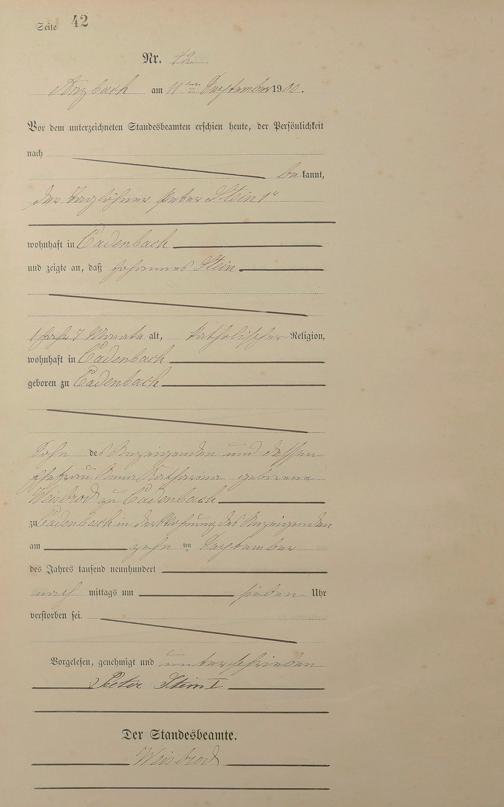 Seite 42
Nr. 42
Arzbach am 11ten September 1900.
Vor dem unterzeichneten Standesbeamten erschien heute, der Persönlichkeit
nach
bekannt,
der Taglöhner Peter Stein I
wohnhaft in Cadenbach
und zeigte an, daß Johannes Stein
1 Jahr 7 Monate alt, katholischer Religion,
wohnhaft in Cadenbach
geboren zu Cadenbach
Sohn des Anzeigenden und dessen
Ehefrau Anna Katharina geborene
Weisbrod zu Cadenbach
zu Cadenbach in der Wohnung des Anzeigenden
am zehnten September
des Jahres tausend neunhundert
nachmittags um sieben Uhr
verstorben sei.
Vorgelesen, genehmigt und unterschrieben
Peter Stein I
Der Standesbeamte.
Weisbrod